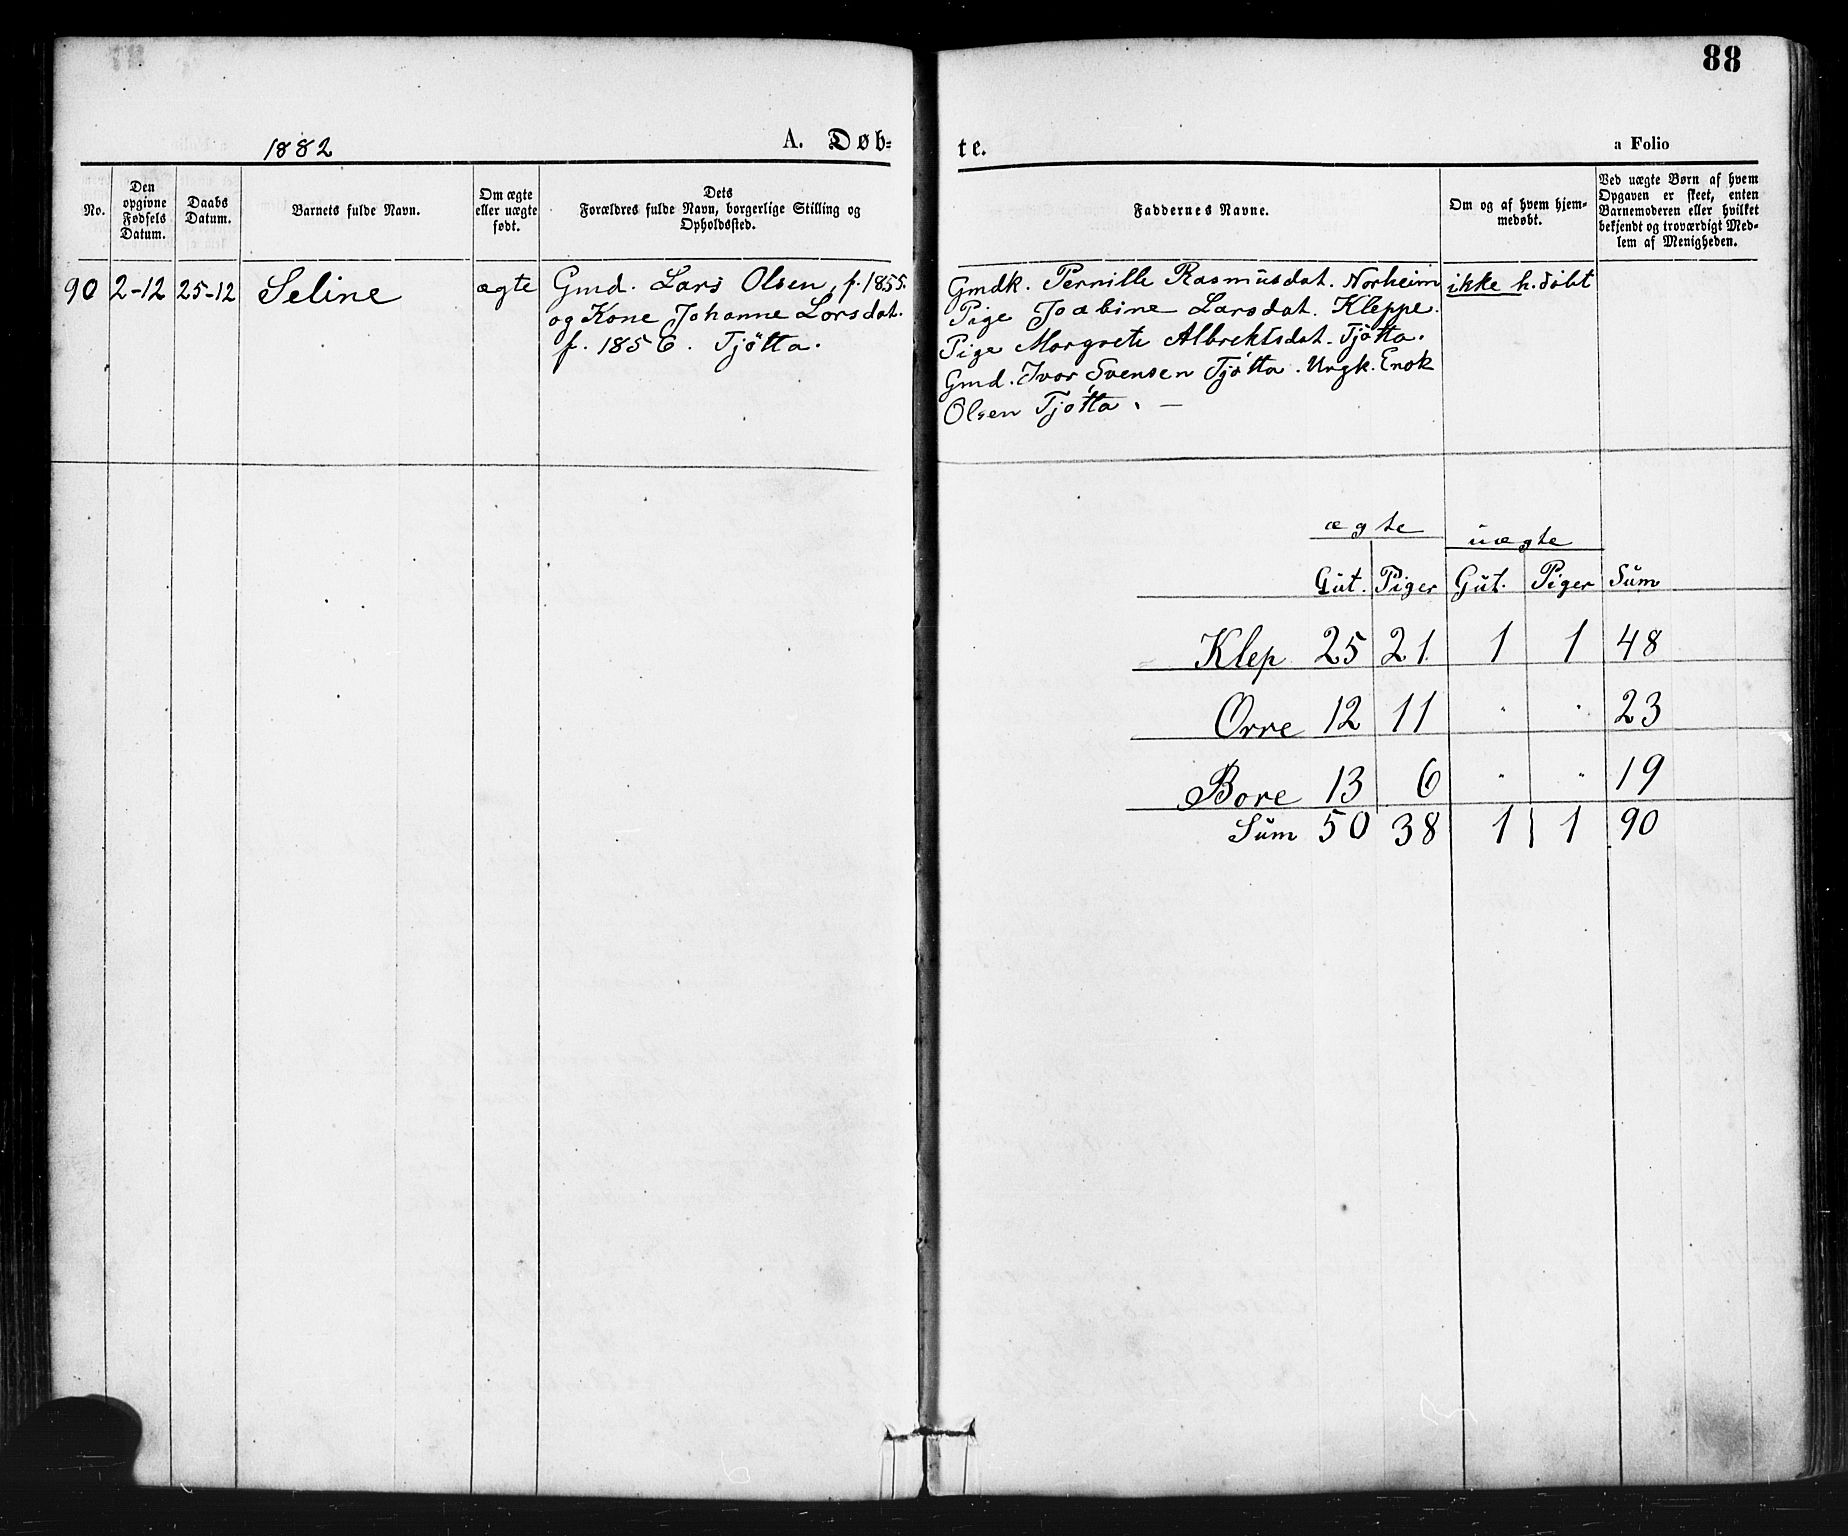 88
1882
A. Døb-
te.
a Folio
No.
Den
opgivne
Fødsels
Datum.
Daabs
Datum.
Barnets fulde Navn.
Om ægte
eller uægte
født.
Dets
Forældres fulde Navn, borgerlige Stilling og
Opholdssted.
Faddernes Navne.
Om og af hvem hjem-
medøbt.
Ved uægte Børn af hvem
Opgaven er skeet, enten
Barnemoderen eller hvilket
bekjendt og troværdigt Med-
lem af Menigheden.
90 2-12 25-12 Seline ægte
Gmd. Lars Olsen, f. 1855.
og Kone Johanne Larsdat.
f. 1856. Tjøtta.
Gmdk. Pernille Rasmusdat. Norheim
Pige Joabine Larsdat. Kleppe.
Pige Margrete Albrektsdat. Tjøtta.
Gmd. Ivar Svensen Tjøtta. Ungk. Enok
Olsen Tjøtta. —
ikke h.døbt
ægte uægte
Gut. Piger Gut. Piger Sum
Klep 25 21. 1 1 48
Orre 12 11 " " 23
Bore 13 6 " " 19
Sum 50 38 1 1 90